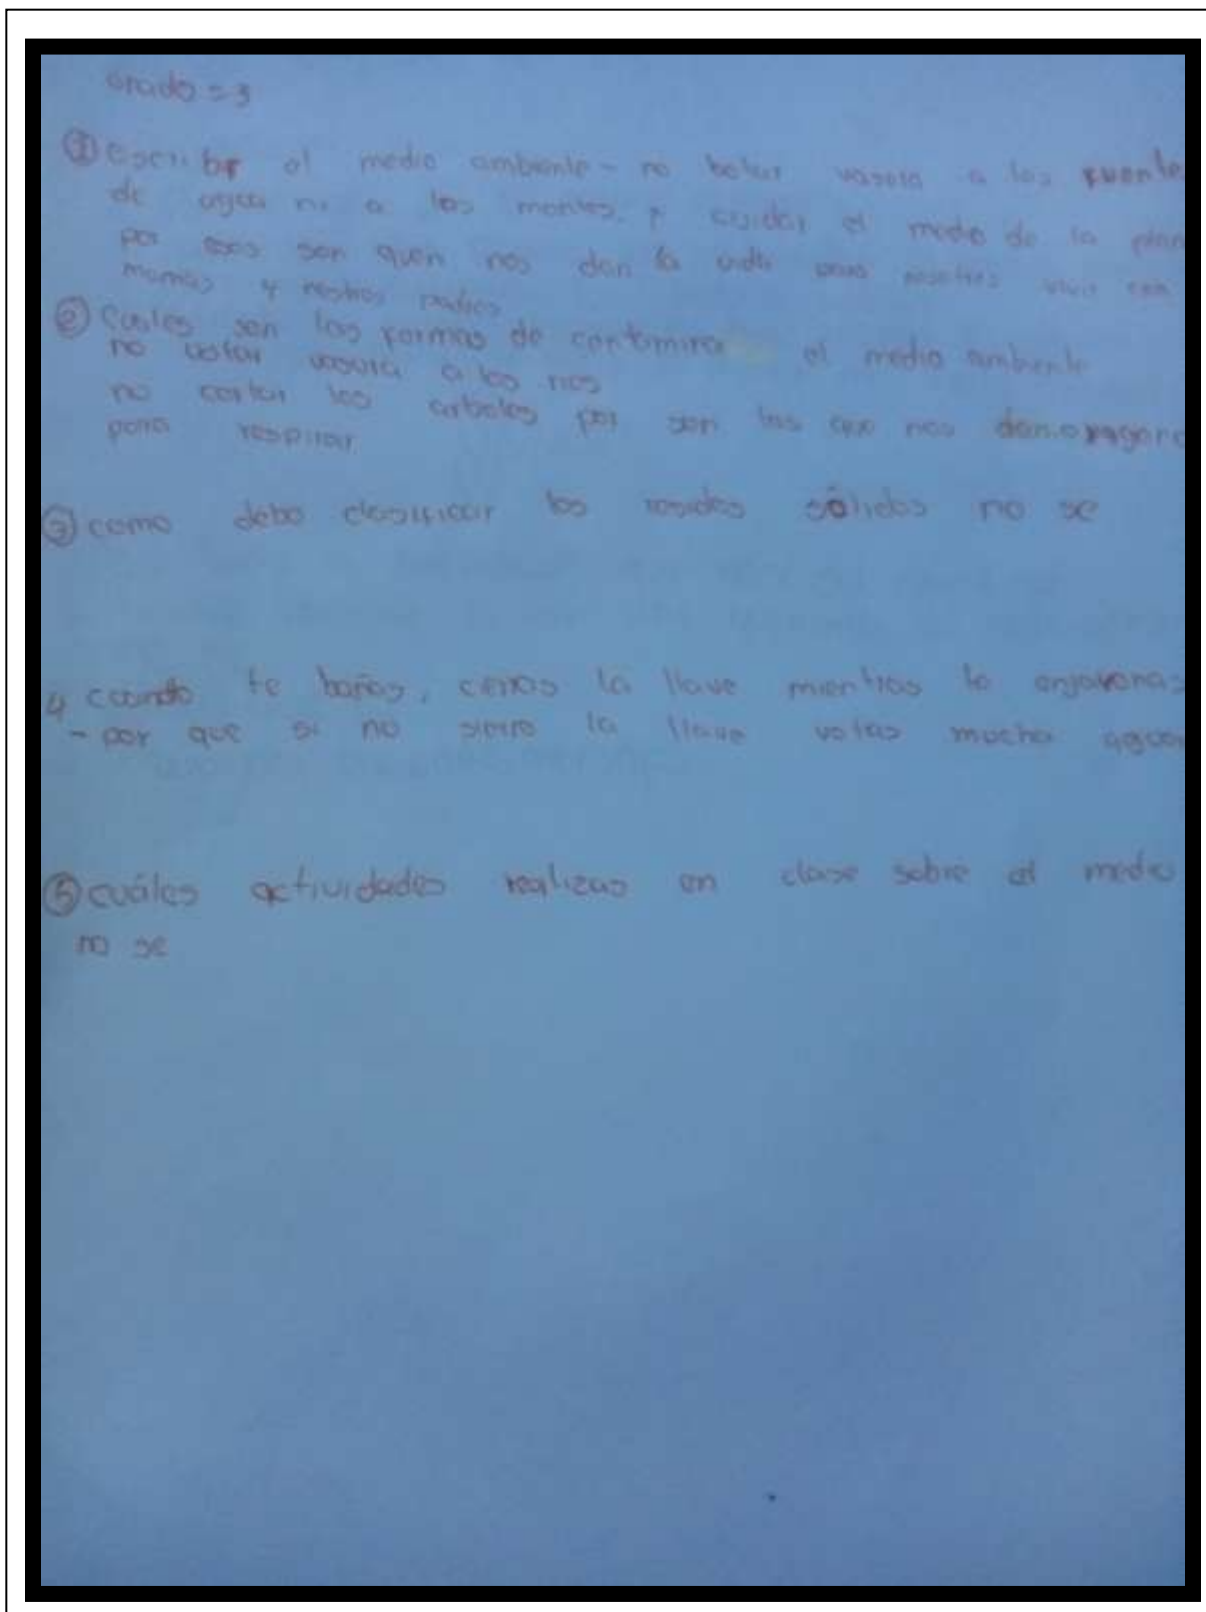 Grado = 3
① escribe el medio ambiente - no botar vasora a los fuente
de agua ni a los montes. y cuidar el medio de la plan
por esos son quen nos dan la vida para nosotros vivir con
mamas y nestros padres
② Cuales son las formas de contamira el medio ambiente
no votar vasura a los rios
no cortar los arboles por son las que nos dan
para respirar
③ como debo clasificar los residos sólidos no se
4 cuando te bañas, cerras la llave mientras te enjavonas
- por que si no sierro la llave votas mucha agua
⑤ cuáles actividades realizas en clase sobre el medio
no se